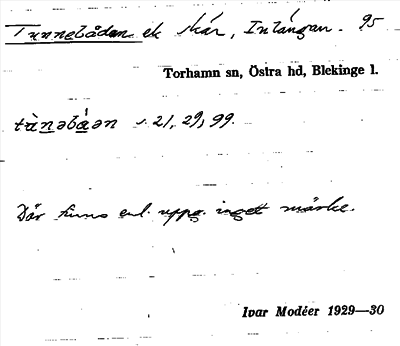 Tunnebådan ek skär, Inlängan. 95
Torhamn sn, Östra hd, Blekinge l.
tùnəbàən 21, 29, 99.
Där finns enl. uppg. inget märke.
Ivar Modéer 1929—30